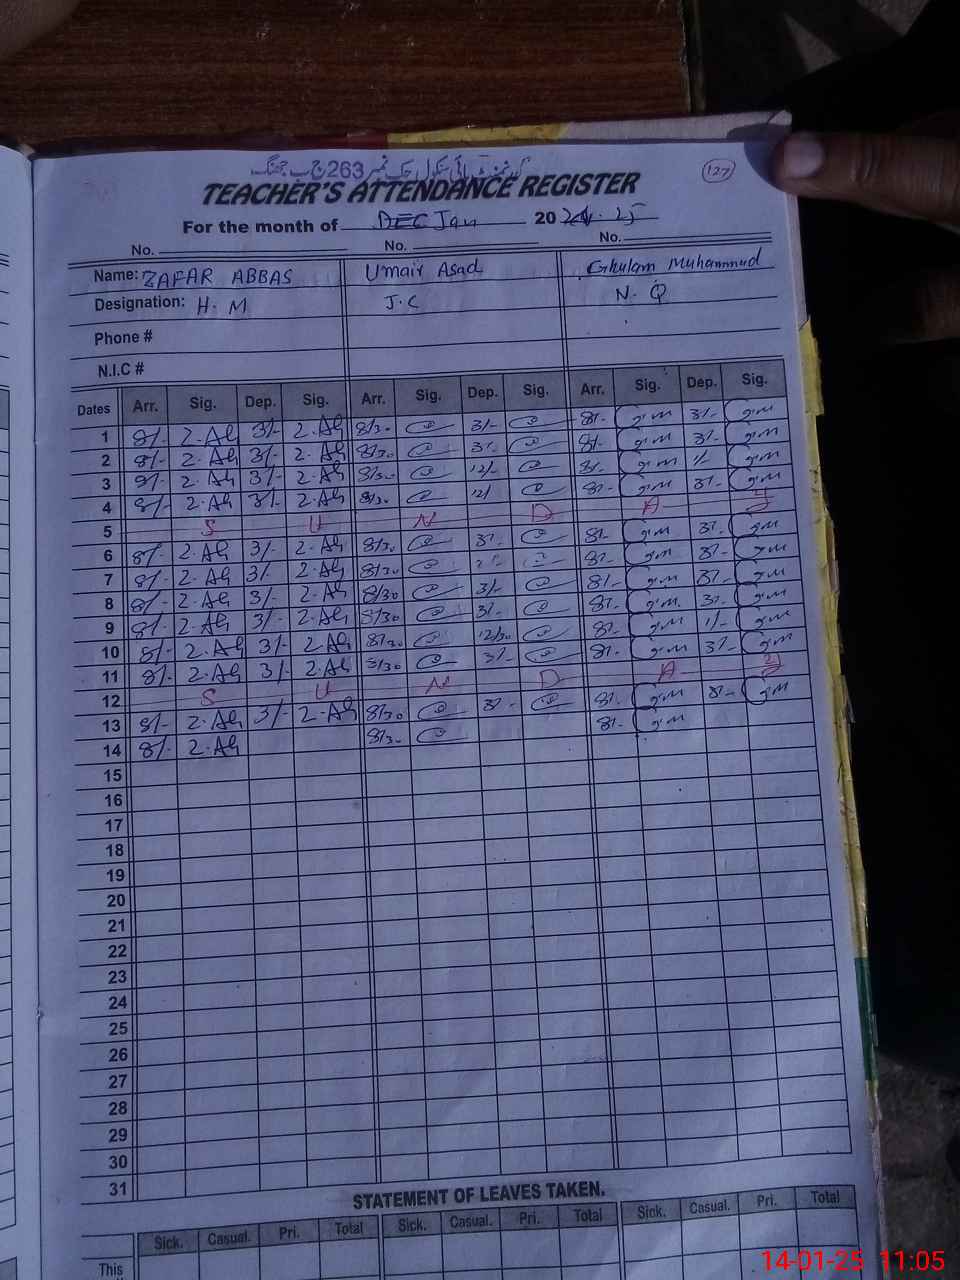 263
127
TEACHER'S ATTENDANCE REGISTER
For the month of DEC Jan 2024. 25
No. No. No.
Name: ZAFAR ABBAS Umair Asad Ghulam Muhammad
Designation: H. M J. C N. Q
Phone #
N.I.C #
Dates Arr. Sig. Dep. Sig. Arr. Sig. Dep. Sig. Arr. Sig. Dep. Sig.
1 8/- Z.Ali 3/- Z.Ali 8/30 3/- 8/- gm 3/- gm
2 8/- Z.Ali 3/- Z.Ali 8/30 3/- 8/- gm 3/- gm
3 8/- Z.Ali 3/- Z.Ali 8/30 12/- 8/- gm 1/- gm
4 8/- Z.Ali 3/- Z.Ali 8/30 12/ 8/- gm 3/- gm
5 S U N D A Y
6 8/- Z.Ali 3/- Z.Ali 8/30 3/- 8/- gm 3/- gm
7 8/- Z.Ali 3/- Z.Ali 8/30 8/- gm 3/- gm
8 8/- Z.Ali 3/- Z.Ali 8/30 3/- 8/- gm 3/- gm
9 8/- Z.Ali 3/- Z.Ali 8/30 3/- 8/- gm 3/- gm
10 8/- Z.Ali 3/- Z.Ali 8/30 12/30 8/- gm 1/- gm
11 8/- Z.Ali 3/- Z.Ali 8/30 3/- 8/- gm 3/- gm
12 S U N D A Y
13 8/- Z.Ali 3/- Z.Ali 8/30 3/- 8/- gm 3/- gm
14 8/- Z.Ali 8/30 8/- gm
15
16
17
18
19
20
21
22
23
24
25
26
27
28
29
30
31
STATEMENT OF LEAVES TAKEN.
Sick. Casual. Pri. Total Sick. Casual. Pri. Total Sick. Casual. Pri. Total
This
14-01-25 11:05